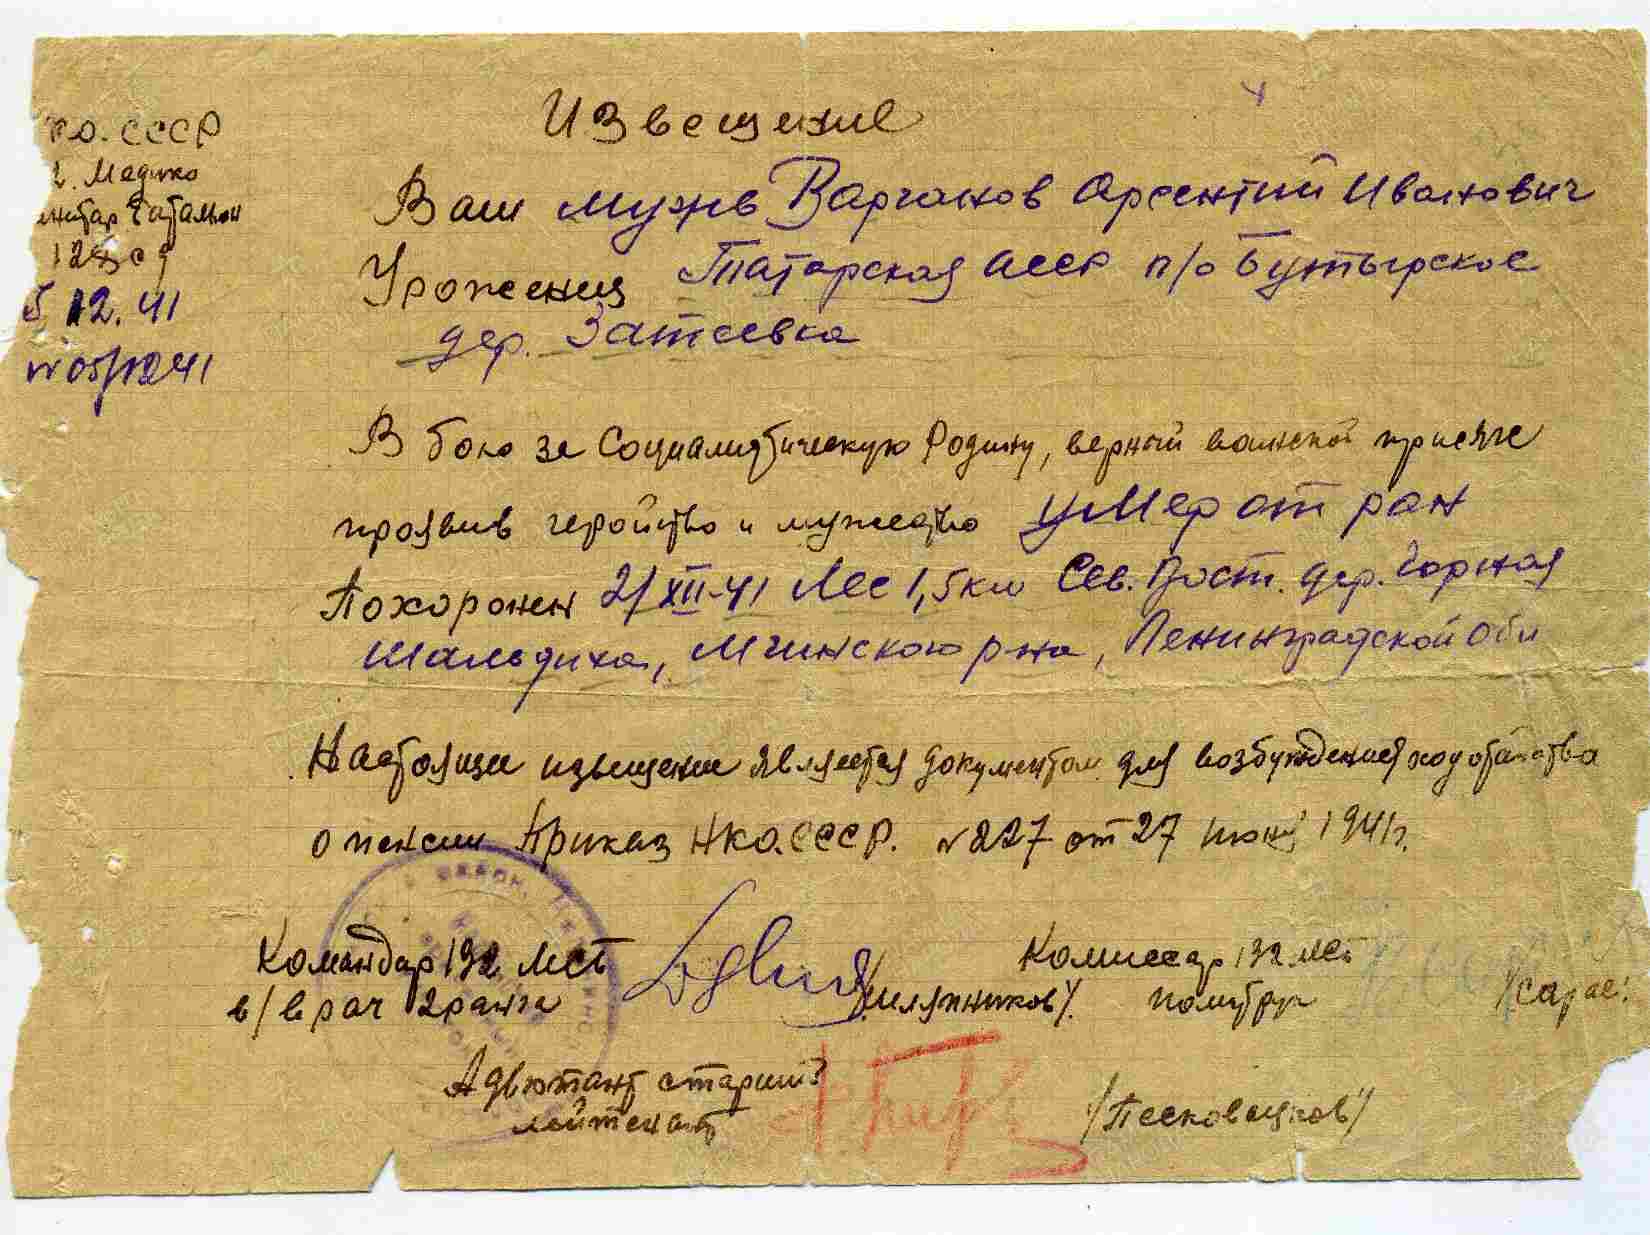 Н.О. СССР
Медико
санитар батальон
128 сд
5 12. 41
№ 05/1241
Извещение
Ваш мужъ Варганов Арсентий Иванович
Уроженец Татарская АССР п/о Бутырское
дер. Затеевка
В бою за Социалистическую Родину, верный воинской присяге
проявив геройство и мужество умер от ран
Похоронен 21 XII-41 Лес 1,5 км Сев. Вост. дер. Горная
Шальдиха, Мгинского р-на, Ленинградской Обл
Настоящее извещение является документом для возбуждения ходатайства
о пенсии Приказ НКО.СССР. №227 от 27 июня 1941г.
Командир 192 МСБ
Комиссар 192 МСБ
в/врач 2 ранга
/Шляпников/.
политрук
/Сарае
Адъютант старший
лейтенант
/Песковацков/